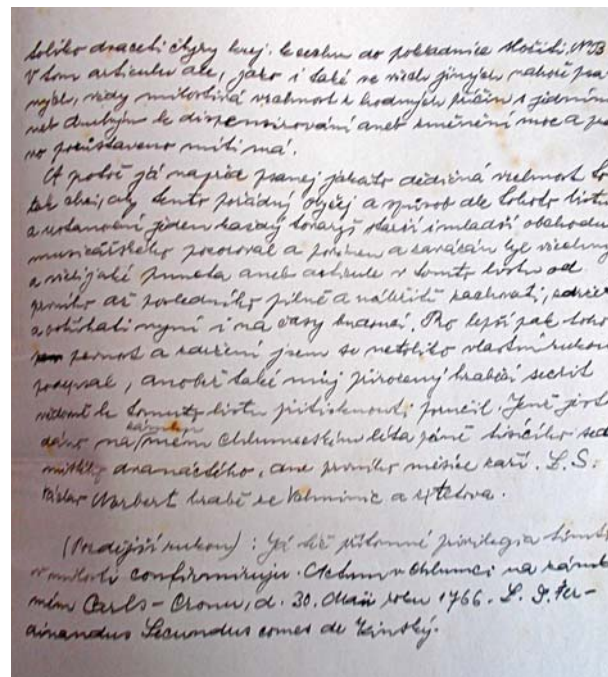 toliko draceti čtyry krej. k cechu do pokladnice složiti. NB
V tom articulu ale, jako i také ve všech jiných nahoře psa
ných, vždy milostivá vrchnost z hodných příčin s jedním
neb druhým k dispensirování aneb změnění moc a prá
vo pozůstaveno míti má.
A poněž já napřed psanej jakžto dědičná vrchnost to
tak chci, aby tento pořádný obyčej a způsob dle tohoto listu
a ustanovení jeden každý tovaryš starší i mladší obchodu
musicářského pozoroval a povinen a zavázán byl všechny
a všelijaké puncta aneb articule v tomto listu od
prvního až posledního pilně a náležitě zachovati, zdržeti
a ostříhati nyní i na časy budoucí. Pro lepší pak toho
pevnost a zdržení jsem se netoliko vlastní rukou
podepsal, anobrž také můj přirozený hraběcí secrit
vědomě k tomuto listu přitisknouti poručil. Jenž jest
dáno na zámku mém Chlumeckém léta páně tisícího sed
mistého dvanáctého, dne prvního měsíce září. L. S.
Václav Norbert hrabě ze Vchminic a z Tetova.
(Pozdější rukou): Já též přítomné privilegia tímto
v milosti confirmiruju. Actum v Chlumci na zám
mém Carls-Cronu, d. 30. Maii roku 1766. L. S. Fer-
dinandus Secundus comes de Kinský.